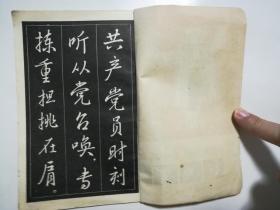 共产党员时刻
听从党召唤，专
拣重担挑在肩